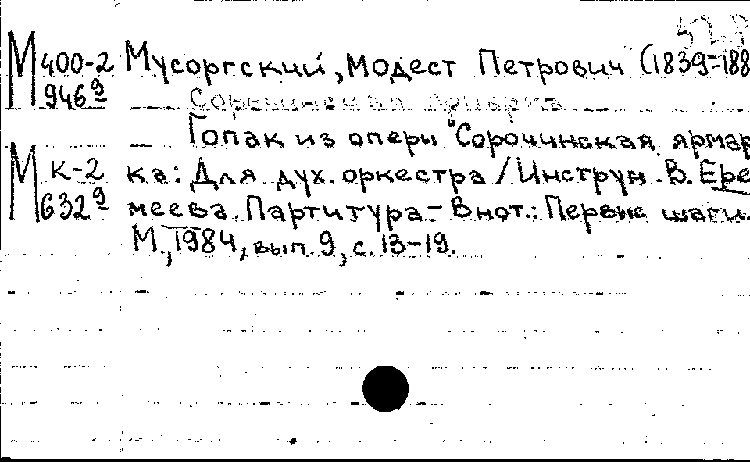 М 400-2 Мусоргский, Модест Петрович (1839-188
946⁹ Сорочинская ярмарка
Гопак из оперы "Сорочинская ярмар
М К-2 ка: Для дух. оркестра / Инструм. В. Ере
632⁹ меева. Партитура.- В нот.: Первые шаги.
М., 1984, вып. 9, с. 13-19.